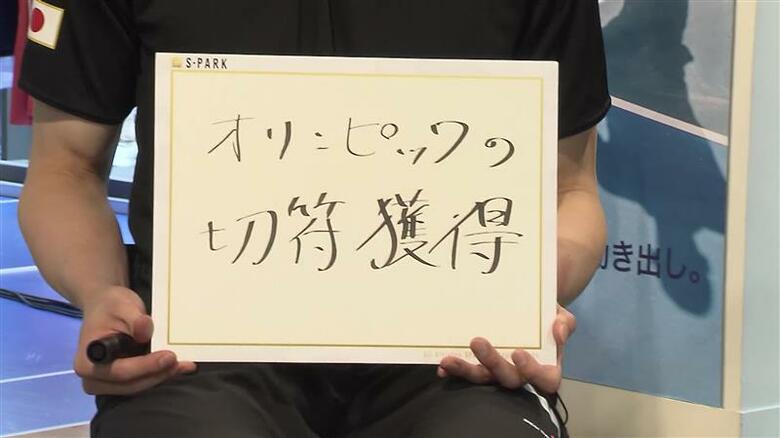 S-PARK
オリンピックの
切符獲得
き出し。